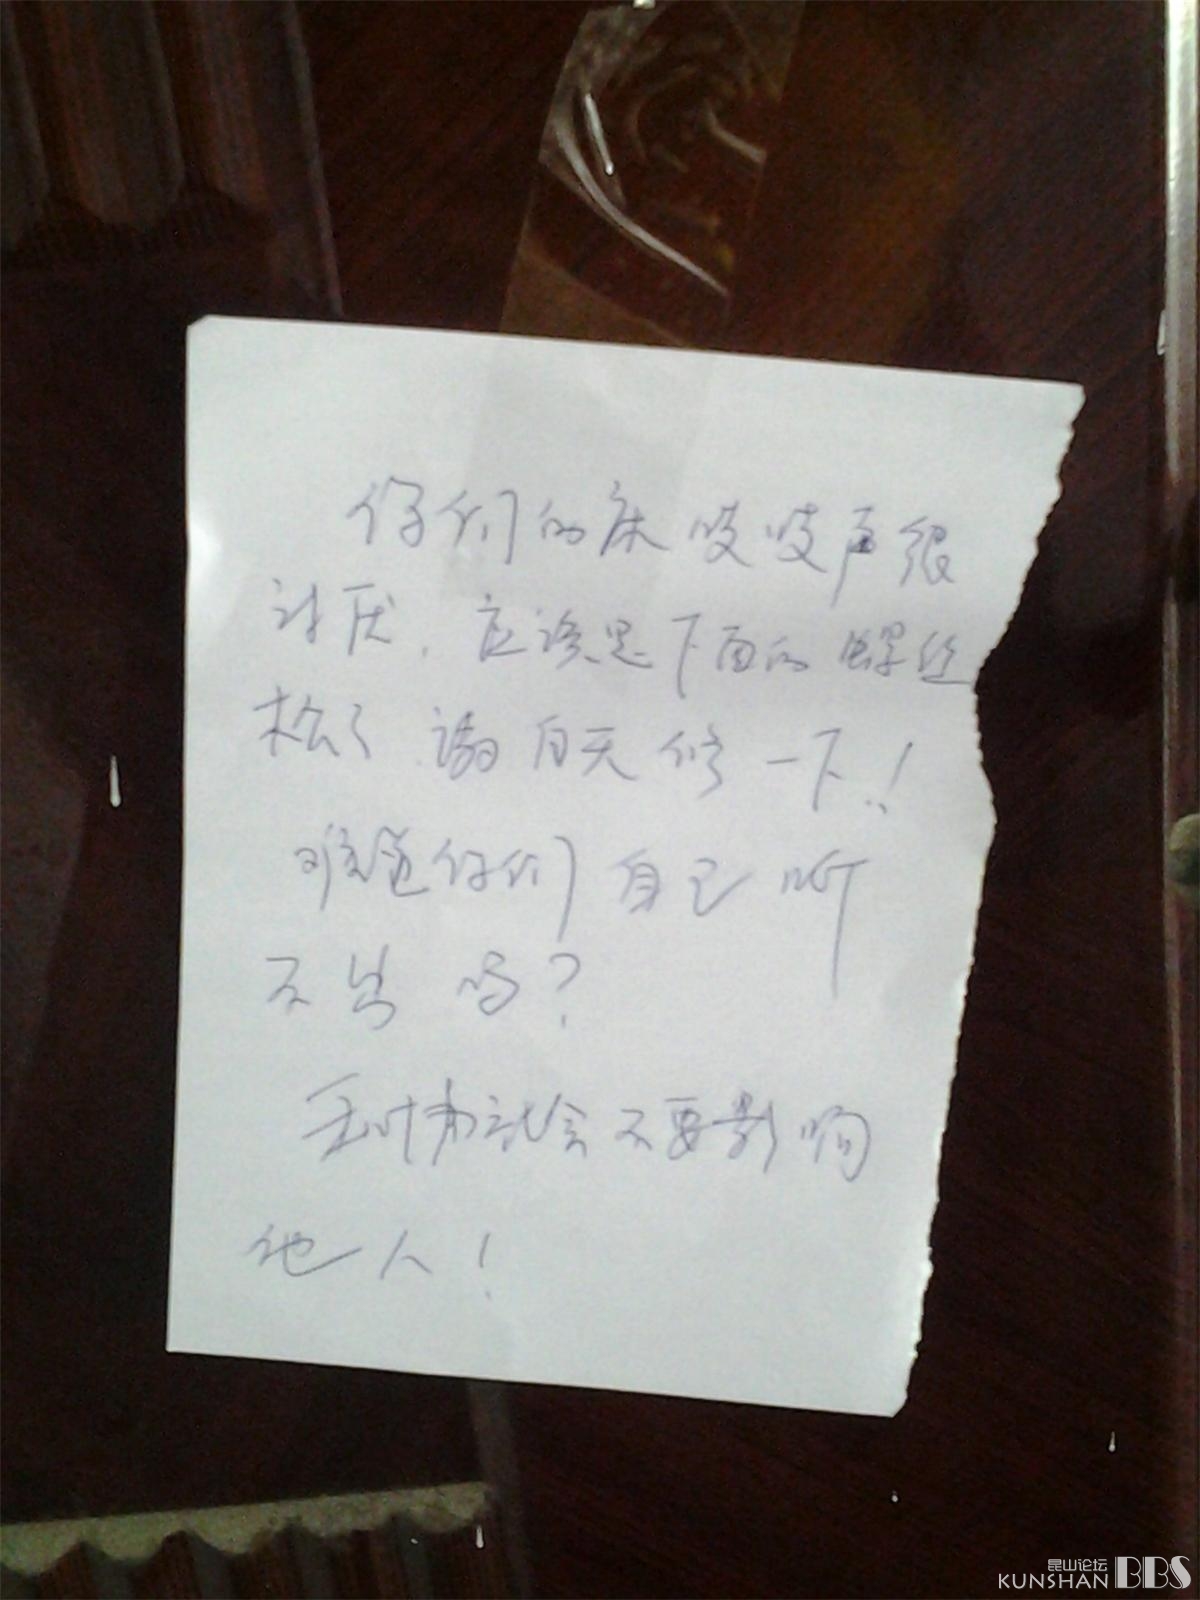 你们的床吱吱声很
讨厌，应该是下面的螺丝
松了 请白天修一下！
难道你们自己听
不出吗？
手时就会不要影响
他人！
昆山论坛
KUNSHAN BBS